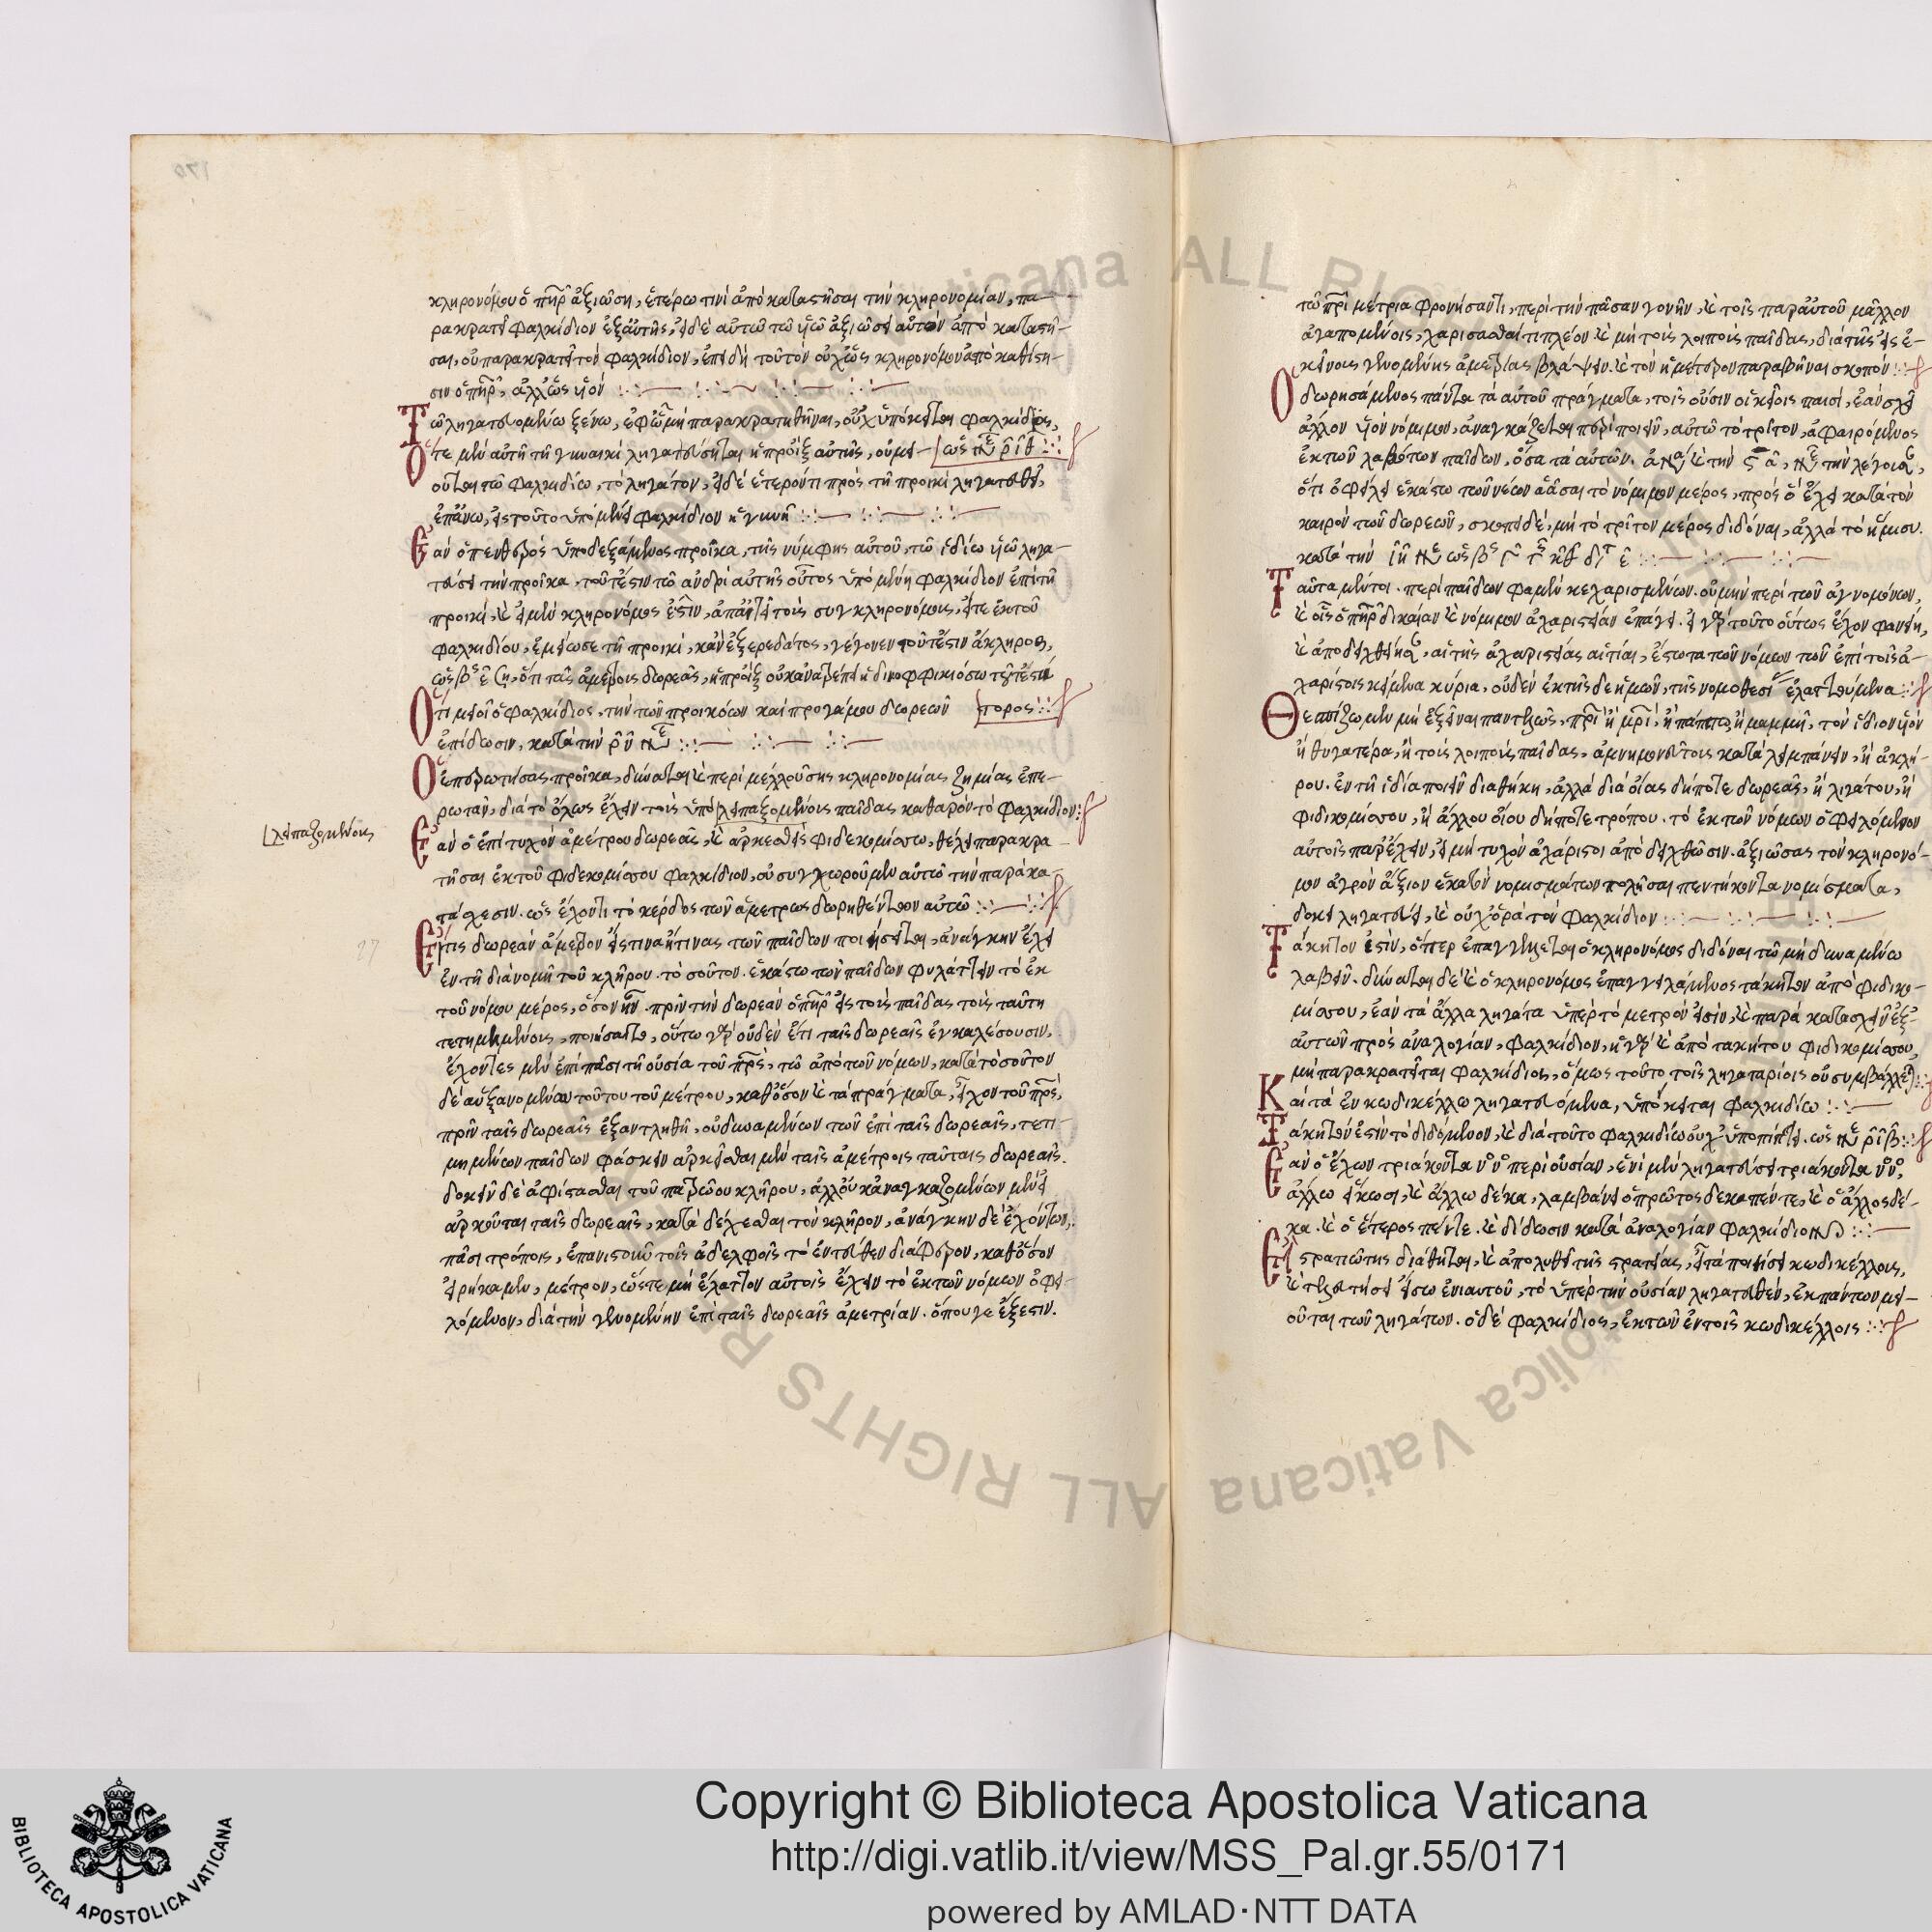 κληρονόμου ὁ πηρ ἀξιώση, ἑτέρω τινὶ ἀποκαταστῆσαι τὴν κληρονομίαν, πα-
ρακρατεῖ φαλκίδιον ἐξ αὐτῆς, εἰ δὲ αὐτῶ τῶ
σαι, οὐ παρακρατεῖ τὸν φαλκίδιον, ἐπειδὴ τοῦτον οὐχ ὡς κληρονόμον ἀποκαθίστη-
σιν ὁ πηρ, ἀλλ' ὡς
Τῶ ληγατευομένω ξένω, ἐφ' ὧ μὴ παρακρατηθῆναι, οὐχ ὑπόκειται φαλκίδιος,
Ὅτε μὲν αὐτῆ τῆ γυναικὶ ληγατευθήσεται ἡ προὶξ αὐτῆς, οὐ μει- ὡς ριθ
οῦται τῶ φαλκιδίω, τὸ ληγάτον, εἰ δὲ ἕτερόν τι πρὸς τῆ προικὶ
ἐπάνω, εἰς τοῦτο ὑπομένει φαλκίδιον ἡ γυνὴ
Ἐὰν ὁ πενθερὸς ὑποδεξάμενος προῖκα, τῆς νύμφης αὐτοῦ, τῶ ἰδίω ληγα-
τεύσει τὴν προῖκα, τουτέστιν τῶ ἀνδρὶ αὐτῆς οὗτος ὑπομένει φαλκίδιον ἐπὶ τῆ
προικὶ, εἰ μὲν κληρονόμος ἐστὶν, ἀπαιτεῖ τοῖς συγκληρονόμοις, εἴτε ἐκ τοῦ
φαλκιδίου, ἐμείωσε τῆ προικὶ, κἂν ἐξερεδάτος, γέγονεν τουτέστιν ἀκληρος,
ὅτι τὰς ἀμέτρους δωρεὰς, ἡ προὶξ οὐκ ἀνατρέπει
Ὅτι μειοῖ ὁ φαλκίδιος, τὴν τῶν προικώων καὶ προγάμου δωρεῶν πορος
ἐπίδωσιν, κατὰ τὴν ρν
Ὁ ἐπερωτήσας προῖκα, δύναται καὶ περὶ μελλούσης κληρονομίας ζημίας ἐπε-
ρωτᾶν, διὰ τὸ ὅλως ἔχειν τοὺς ὑπολειπαζομένους παῖδας καθαρὸν τὸ φαλκίδιον
λειπαζομένους
Ἐὰν ὁ ἐπιτυχὼν ἀμέτρου δωρεᾶς, καὶ ἀρκεσθεὶς φιδεκομίσσω, θέλει παρακρα-
τῆσαι ἐκ τοῦ φιδεκομίσσου φαλκίδιον, οὐ συγχωροῦμεν αὐτῶ τὴν παρακα-
τάσχεσιν. ὡς ἔχοντι τὸ κέρδος τῶν ἀμέτρως δωρηθέντων αὐτῶ
27
Εἴ τις δωρεὰν ἄμετρον εἴς τινα ἢ τινας τῶν παίδων ποιήσεται, ἀνάγκην ἔχει
ἐν τῆ διανομῆ τοῦ κλήρου. τοσοῦτον. ἑκάστω τῶν παίδων φυλάττειν τὸ ἐκ
τοῦ νόμου μέρος, ὅσον ἦν. πρὶν τὴν δωρεὰν ὁ πηρ εἰς τοὺς παῖδας τοὺς ταύτη
τετιμημένους, ποιήσαιτο, οὕτω γὰρ οὐδὲν ἔτι ταῖς δωρεαῖς ἐγκαλέσουσιν,
ἔχοντες μὲν ἐπὶ πάση τῆ οὐσία τοῦ πρς, τῶ ἀπὸ τῶν νόμων, κατὰ τοσοῦτον
δὲ αὐξανομένου τούτου τοῦ μέτρου, καθ' ὅσον καὶ τὰ πράγματα, εἶχον τοῦ πρς,
πρὶν ταῖς δωρεαῖς ἐξαντληθῆ, οὐ δυναμένων τῶν ἐπὶ ταῖς δωρεαῖς, τετι-
μημένων παίδων φάσκειν ἀρκεῖσθαι μὲν ταῖς ἀμέτροις ταύταις δωρεαῖς.
δοκεῖν δὲ ἀφίστασθαι τοῦ πατρώου κλήρου, ἀλλ' οὐκ ἀναγκαζομένων μὲν εἰ
ἀρκοῦνται ταῖς δωρεαῖς, καταδέχεσθαι τὸν κλῆρον, ἀνάγκην δὲ ἐχόντων,
πᾶσι τρόποις, ἐπανισοῦν τοῖς ἀδελφοῖς τὸ ἐντεῦθεν διάφορον, καθ' ὅσον
εἰρήκαμεν, μέτρον, ὥστε μὴ ἔλαττον αὐτοὺς ἔχειν τὸ ἐκ τῶν νόμων ὀφει-
λόμενον, διὰ τὴν γενομένην ἐπὶ ταῖς δωρεαῖς ἀμετρίαν. ὅπου γε ἔξεστιν.
τῶ πρι μέτρια φρονήσαντι, περὶ τὴν πᾶσαν γονὴν, καὶ τοῖς παρ' αὐτοῦ μᾶλλον
ἀγαπομένοις, χαρίσασθαί τι πλέον καὶ μὴ τοὺς λοιποὺς παῖδας, διὰ τῆς εἰς ἐ-
κείνους γενομένης ἀμετρίας βλάψειν. καὶ τὸν ἡμέτερον παραβῆναι σκοπόν
Ὁ δωρησάμενος πάντα τὰ αὐτοῦ πράγματα, τοῖς οὖσιν οἰκείοις παισὶ, ἐὰν σχῆ
ἄλλον νόμιμον, ἀναγκάζεται περιποιεῖν, αὐτῶ τὸ τρίτον, ἀφαιρόμενος
ἐκ τῶν λαβόντων παίδων, ὅσα τὰ αὐτῶν.
ὅτι ὀφείλει ἑκάστω τῶν νέων ἐᾶσαι τὸ νόμιμον μέρος, πρὸς ὃ ἔχει κατὰ τὸν
καιρὸν τῶν δωρεῶν, σκόπει δὲ, μὴ τὸ τρίτον μέρος διδόναι, ἀλλὰ τὸ ἥμισυ.
κατὰ τὴν ιη
Ταῦτα μέντοι. περὶ παίδων φαμὲν κεχαρισμένων. οὐ μὴν περὶ τῶν ἀγνομόνων,
καὶ οἷς ὁ πηρ δικαίαν καὶ νόμιμον ἀχαριστίαν ἐπάγει. εἰ γὰρ τοῦτο οὕτως ἔχον φανείη,
καὶ ἀποδειχθείησαν, αἱ τῆς ἀχαριστίας αἰτίαι, ἔστω τὰ τῶν νόμων τῶν ἐπὶ τοῖς ἀ-
χαρίστοις κείμενα κύρια, οὐδὲν ἐκ τῆσδε ἡμῶν, τῆς νομοθεσίας ἐλαττούμενα
Θεσπίζωμεν μὴ ἐξεῖναι παντελῶς, πρὶ ἢ μρὶ, ἢ πάππω, ἢ μάμμη, τὸν ἴδιον
ἢ θυγατέρα, ἢ τοὺς λοιποὺς παῖδας, ἀμνημονεύτους καταλειμπάνειν, ἢ ἀκλή-
ρου. ἐν τῆ ἰδία ποιεῖν διαθήκη, ἀλλὰ διὰ οἵας δήποτε δωρεᾶς, ἢ λιγάτου, ἢ
φιδικομίσσου, ἢ ἄλλου οἵου δήποτε τρόπου. τὸ ἐκ τῶν νόμων ὀφειλόμενον
αὐτοῖς παρέχειν, εἰ μὴ τυχὸν ἀχάριστοι ἀποδειχθῶσιν. ἀξιώσας τὸν κληρονό-
μον ἀγρὸν ἄξιον ἑκατὸν νομισμάτων πολῆσαι πεντήκοντα νομίσματα,
δοκεῖ ληγατεύειν, καὶ οὐ χωρεῖ τὸν φαλκίδιον
Τάκητον ἐστὶν, ὅπερ ἐπαγγέλλεται ὁ κληρονόμος διδόναι τῶ μὴ δυναμένω
λαβεῖν. δύναται δὲ καὶ ὁ κληρονόμος ἐπαγγειλάμενος τάκητον ἀπὸ φιδικο-
μίσσου, ἐὰν τὰ ἄλλα ληγάτα ὑπὲρ τὸ μέτρον εἰσὶν, καὶ παρακατασχεῖν ἐξ
αὐτῶν πρὸς ἀναλογίαν, φαλκίδιον, καὶ ἀπὸ τακήτου φιδικομίσσου,
μὴ παρακρατεῖται φαλκίδιον, ὅμως τοῦτο τοῖς ληγαταρίοις οὐ συμβάλλεται
Καὶ τὰ ἐν κωδικέλλω ληγατευόμενα, ὑπόκειται φαλκιδίω
Τάκητόν ἐστιν τὸ διδόμενον, καὶ διὰ τοῦτο φαλκιδίω οὐχ ὑποπίπτει. ὡς ριβ
Ἐὰν ὁ ἔχων τριάκοντα περιουσίαν, ἑνὶ μὲν ληγατεύσει τριάκοντα
ἄλλω εἴκωσι, καὶ ἄλλω δέκα, λαμβάνει ὁ πρῶτος δεκαπέντε, καὶ ὁ ἄλλος δέ-
κα. καὶ ὁ ἕτερος πέντε. καὶ δίδωσιν κατὰ ἀναλογίαν φαλκίδιον
Εἰ στρατιώτης διάθηται, καὶ ἀπολυθεὶς τῆς στρατείας, εἶτα ποιήσει κωδικέλλους,
καὶ τελευτήσει εἴσω ἐνιαυτοῦ, τὸ ὑπὲρ τὴν οὐσίαν ληγατευθὲν, ἐκ πάντων μει-
οῦται τῶν ληγάτων. ὁ δὲ φαλκίδιος, ἐκ τῶν ἐν τοῖς κωδικέλλοις
Copyright © Biblioteca Apostolica Vaticana
http://digi.vatlib.it/view/MSS_Pal.gr.55/0171
powered by AMLAD·NTT DATA
BIBLIOTECA APOSTOLICA VATICANA